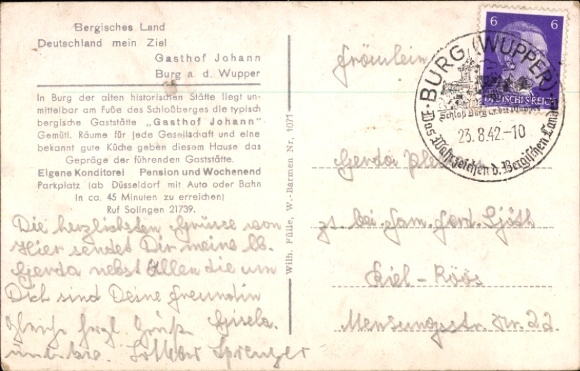 Bergisches Land
Deutschland mein Ziel
Gasthof Johann
Burg a. d. Wupper
In Burg der alten historischen Stätte liegt un-
mittelbar am Fuße des Schloßberges die typisch
bergische Gaststätte „Gasthof Johann“
Gemütl. Räume für jede Gesellschaft und eine
bekannt gute Küche geben diesem Hause das
Gepräge der führenden Gaststätte.
Eigene Konditorei Pension und Wochenend
Parkplatz (ab Düsseldorf mit Auto oder Bahn
in ca. 45 Minuten zu erreichen)
Ruf Solingen 21739.
Die herzlichsten Grüsse von
Hier sendet Dir meine lb.
Gerda nebst Allen die um
Dich sind Deine Freundin
Gisela.
Lothar Sprenger
Wilh. Fülle, W.-Barmen Nr. 1071
6 6
DEUTSCHES REICH
BURG (WUPPER)
Schloß Burg an der Wupper
23.8.42-10
Das Wahrzeichen d. Bergischen Landes
Fräulein
Gerda
zt. bei Fam. Ferd.
Kiel-
Nr. 22